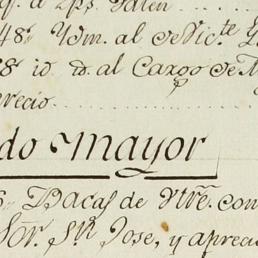 a 2ps. valen
48r. Ydm. al de Victe.
8r. id. id. al Cargo de M
precio
do mayor
Bacas de Vtre. con
Sor. Sn. Jose, y aprecia